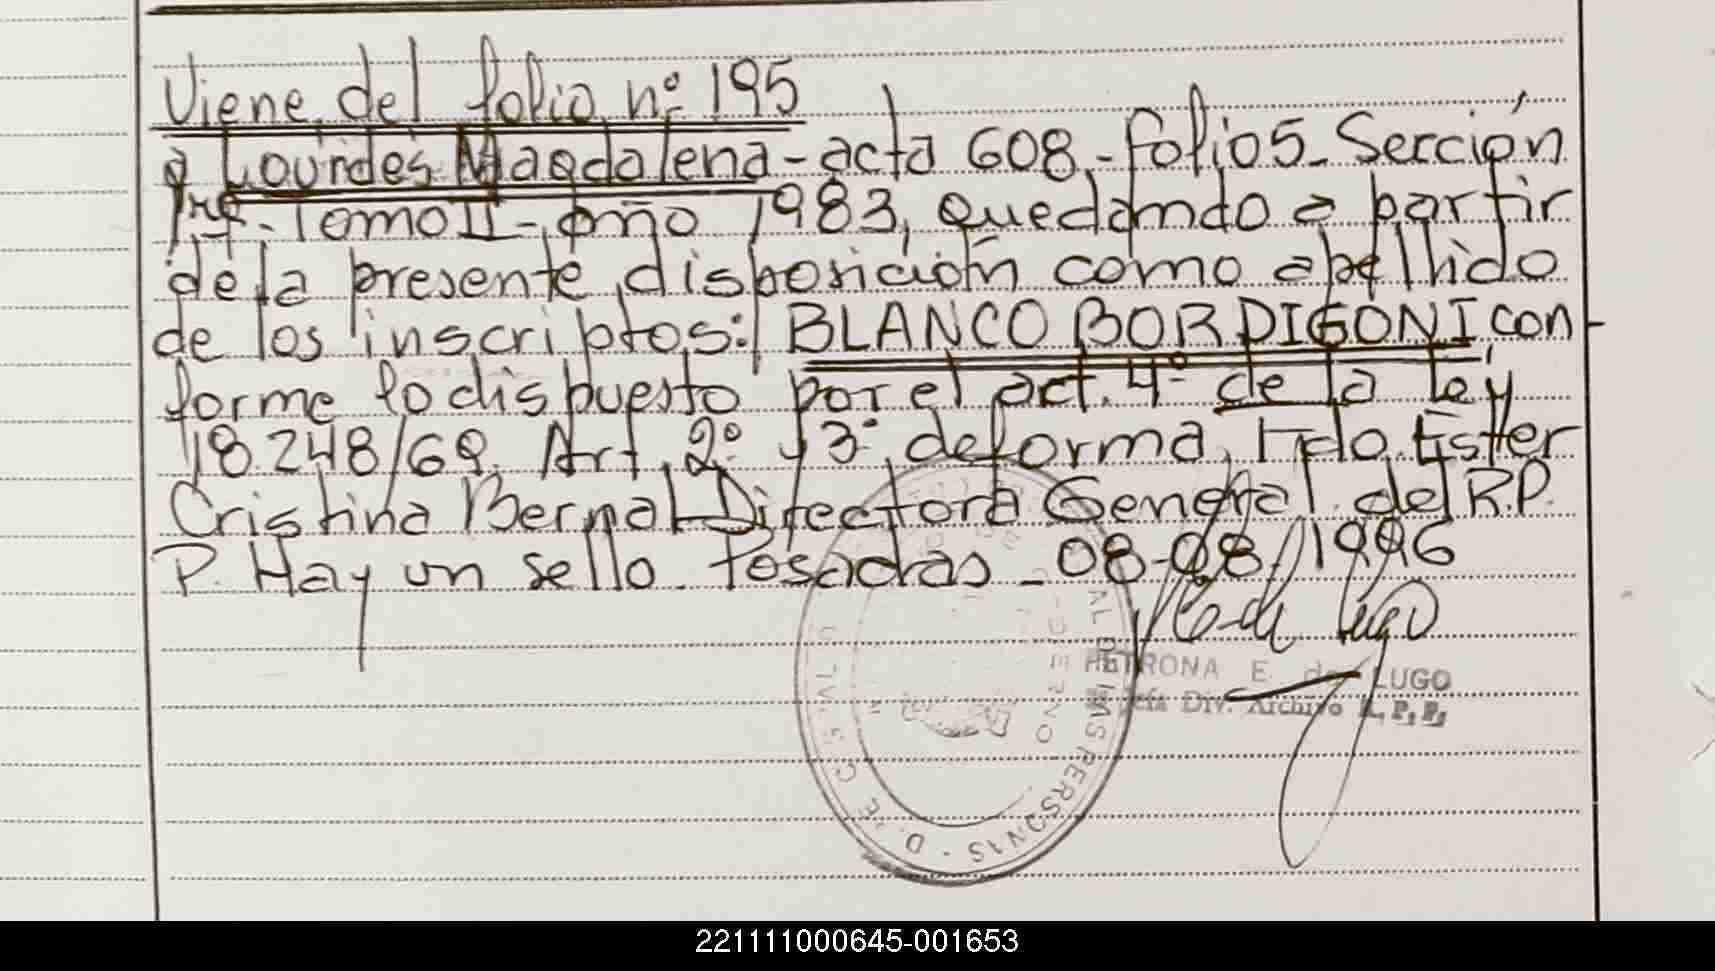 Viene del folio nº 195
a Lourdes Magdalena - acta 608 - folio 5 - Sección
1ra - Tomo II - año 1983, quedando a partir
de la presente disposición como apellido
de los inscriptos: BLANCO BORDIGONI con-
forme lo dispuesto por el art. 4º de la Ley
18.248/69. Art. 2º y 3º de forma, Fdo. Ester
Cristina Bernal Directora General del R.P.
P. Hay un sello. Posadas - 08-08-1996
PETRONA E. de LUGO
Jefa Div. Archivo R. P. P.
221111000645-001653